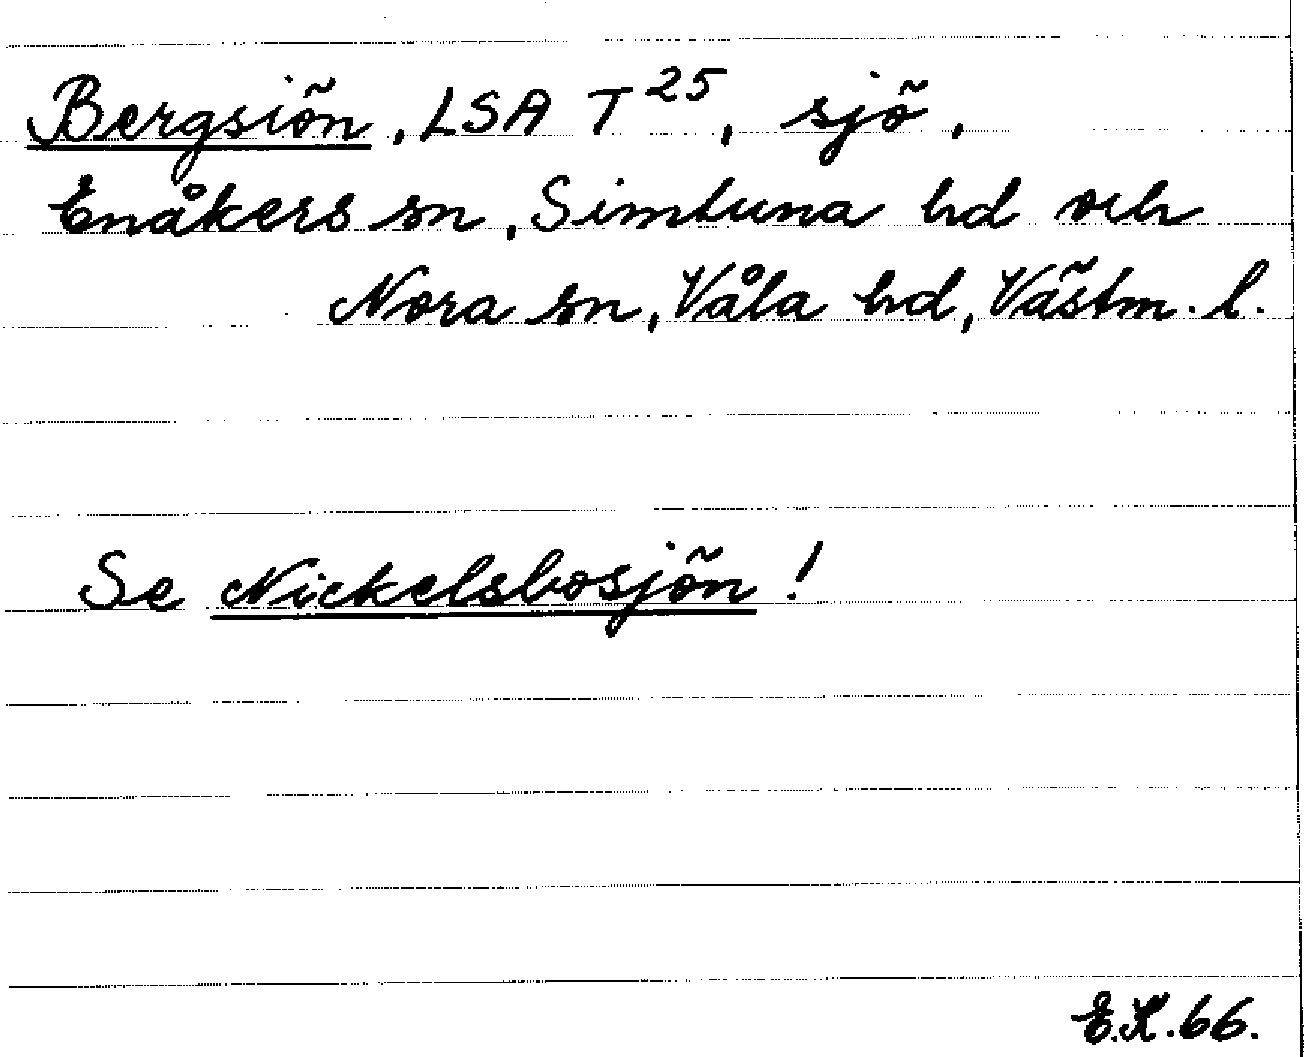 Bergsiön, LSA T²⁵, sjö,
Enåkers sn, Simtuna hd och
Nora sn, Våla hd, Västm. l.
Se Nickelsbosjön!
E.K. 66.